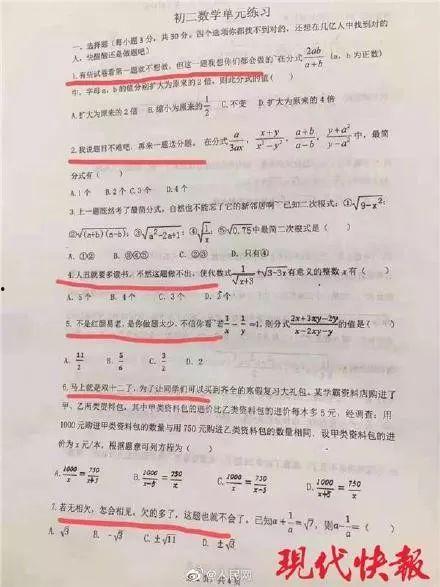 初二数学单元练习
一、选择题（每小题3分，共30分。四个选项你都找不到对的，还想在几亿人中找到对的
人，快醒醒还是做题吧）
1.有些试卷看第一题就不想做，但这一题我想你们都会做的~在分式 2ab/(a+b) (a、b为正数)
中，字母a、b的值分别扩大为原来的2倍，则此分式的值（ ）
A.扩大为原来的2倍 B.缩小为原来的1/2 C.不变 D.扩大为原来的4倍
2.我说题目不难吧，再来一题送分题。 在分式 a/3ax, (x+y)/(x²-y²), (a+b)/(a-b), (y+a²)/(y-a²) 中，最简
分式有（ ）
A.1个 B.2个 C.3个 D.4个
3.上一题既然考了最简分式，自然也不能忘了它的新邻居啊~已知二次根式：①√(9-x²)；
②√((a+b)(a-b))；③√(a²-2a+1)；④√(1/x)；⑤√0.75中最简二次根式是（ ）
A. ①② B. ③④⑤ C. ②③ D. 只有④
4.人丑就要多读书，不然这题做不出。使代数式 1/√(x+3)+√(3-3x) 有意义的整数x有（ ）
A. 5个 B. 4个 C. 3个 D. 2个
5. 不是红颜易老，是你做题太少，不信你看~若 1/x - 1/y =4，则分式 (2x+3xy-2y)/(x-2xy-y) 的值是（ ）
A. 11/2 B. 5/6 C. 3/2 D. 2
6.马上就是双十二了，为了让同学们可以买到齐全的寒假复习大礼包，某学霸资料店购进了
甲、乙两类资料包，其中甲类资料包的进价比乙类资料包的进价每本多5元，经调查：用
1000元购进甲类资料包的数量与用750元购进乙类资料包的数量相同．设甲类资料包的进
价为x元/本，根据题意可列方程为（ ）
A. 1000/x = 750/(x-5) B. 1000/(x-5) = 750/x C. 1000/x = 750/(x+5) D. 1000/(x+5) = 750/x
7.若无相欠，怎会相见。欠的多了，这题也就不会了。已知a+1/a=√7，则a-1/a=（ ）
A. √3 B. -√3 C. ±√11 D. ±√3
现代快报
@人民网